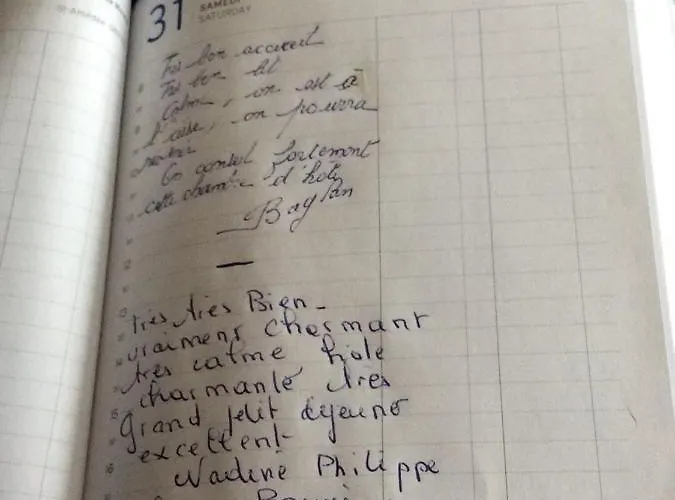 31 SAMEDI
SATURDAY
Très bon accueil
Très bon lit
Calme, on est à
l'aise, on pourra
On conseil fortement
cette chambre d'hote
Baglan
Très très Bien -
vraiment charmant
très calme hole
charmante très
Grand petit dejeuné
excellent
Nadine Philippe